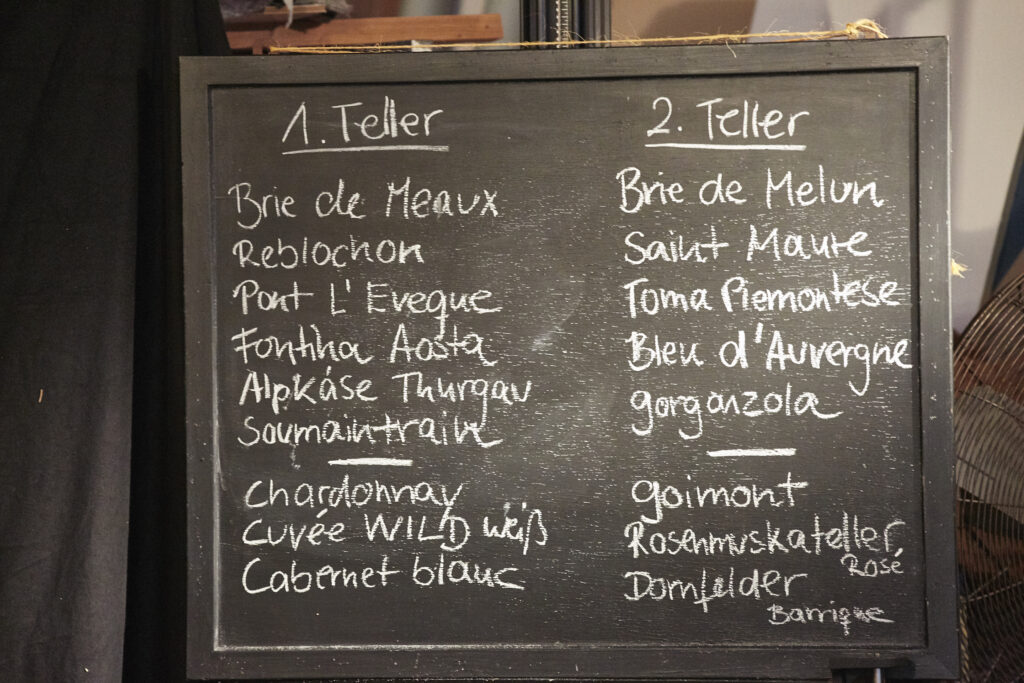 1. Teller
Brie de Meaux
Reblochon
Pont L'Eveque
Fontina Aosta
Alpkäse Thurgau
Soumaintrain
Chardonnay
Cuvée WILD weiß
Cabernet blanc
2. Teller
Brie de Melun
Saint Maure
Toma Piemontese
Bleu d'Auvergne
gorgonzola
goimont
Rosenmuskateller,
Rosé
Dornfelder
Barrique